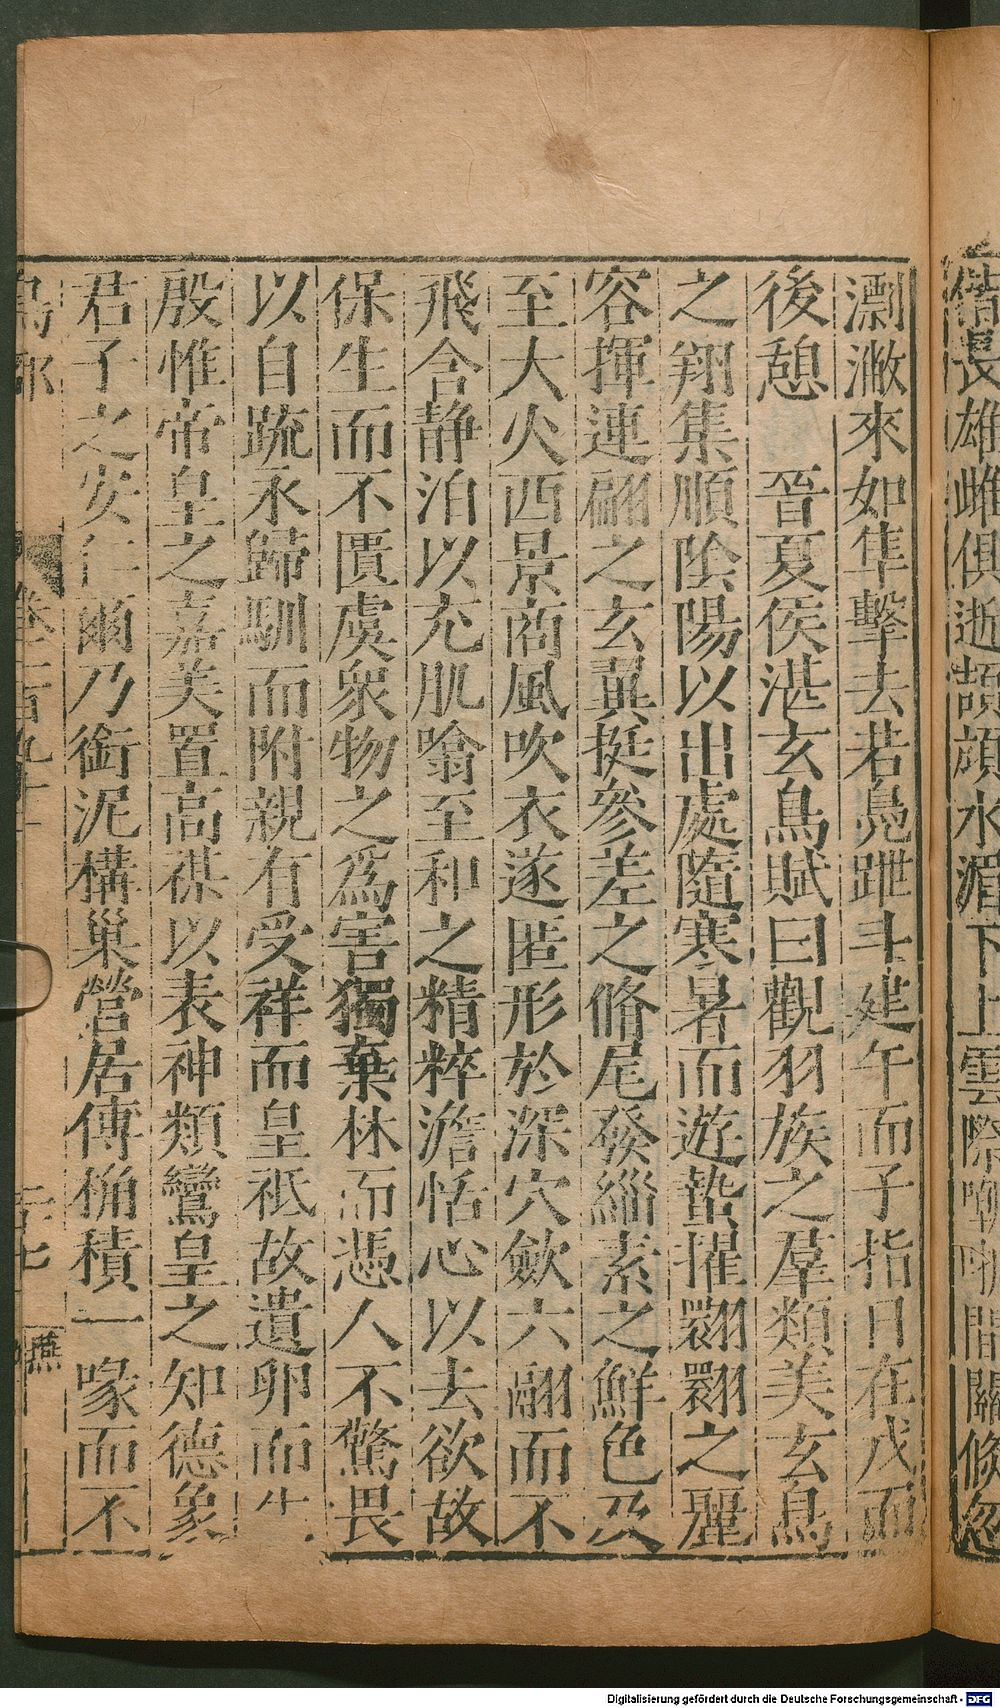 儔長雄雌俱逝頡頏水湄下上雲際啁哳間關倏忽
澌澉來如隼擊去若鳧跇斗建午而子指日在戊而
後憩　晉夏侯湛玄鳥賦曰觀羽族之羣類美玄鳥
之翔集順陰陽以出處隨寒暑而遊蟄擢翾翾之麗
容揮連翩之玄翼挺參差之脩尾發緇素之鮮色及
至大火西景商風吹衣遂匿形於深穴歛六翮而不
飛含静泊以充肌噏至和之精粹澹恬心以去欲故
保生而不匱虞衆物之爲害獨棄林而憑人不驚畏
以自疏永歸馴而附親有受祥而皇祇故遺卵而生
殷惟帝皇之嘉美置高禖以表神類鸞皇之知德象
君子之安仁爾乃銜泥構巢營居傅桷積一喙而不
鳥部　卷一百九十二　二十七　燕
Digitalisierung gefördert durch die Deutsche Forschungsgemeinschaft - DFG